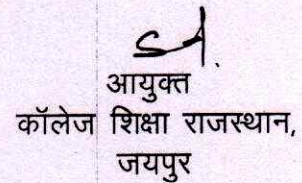 आयुक्त
कॉलेज शिक्षा राजस्थान,
जयपुर